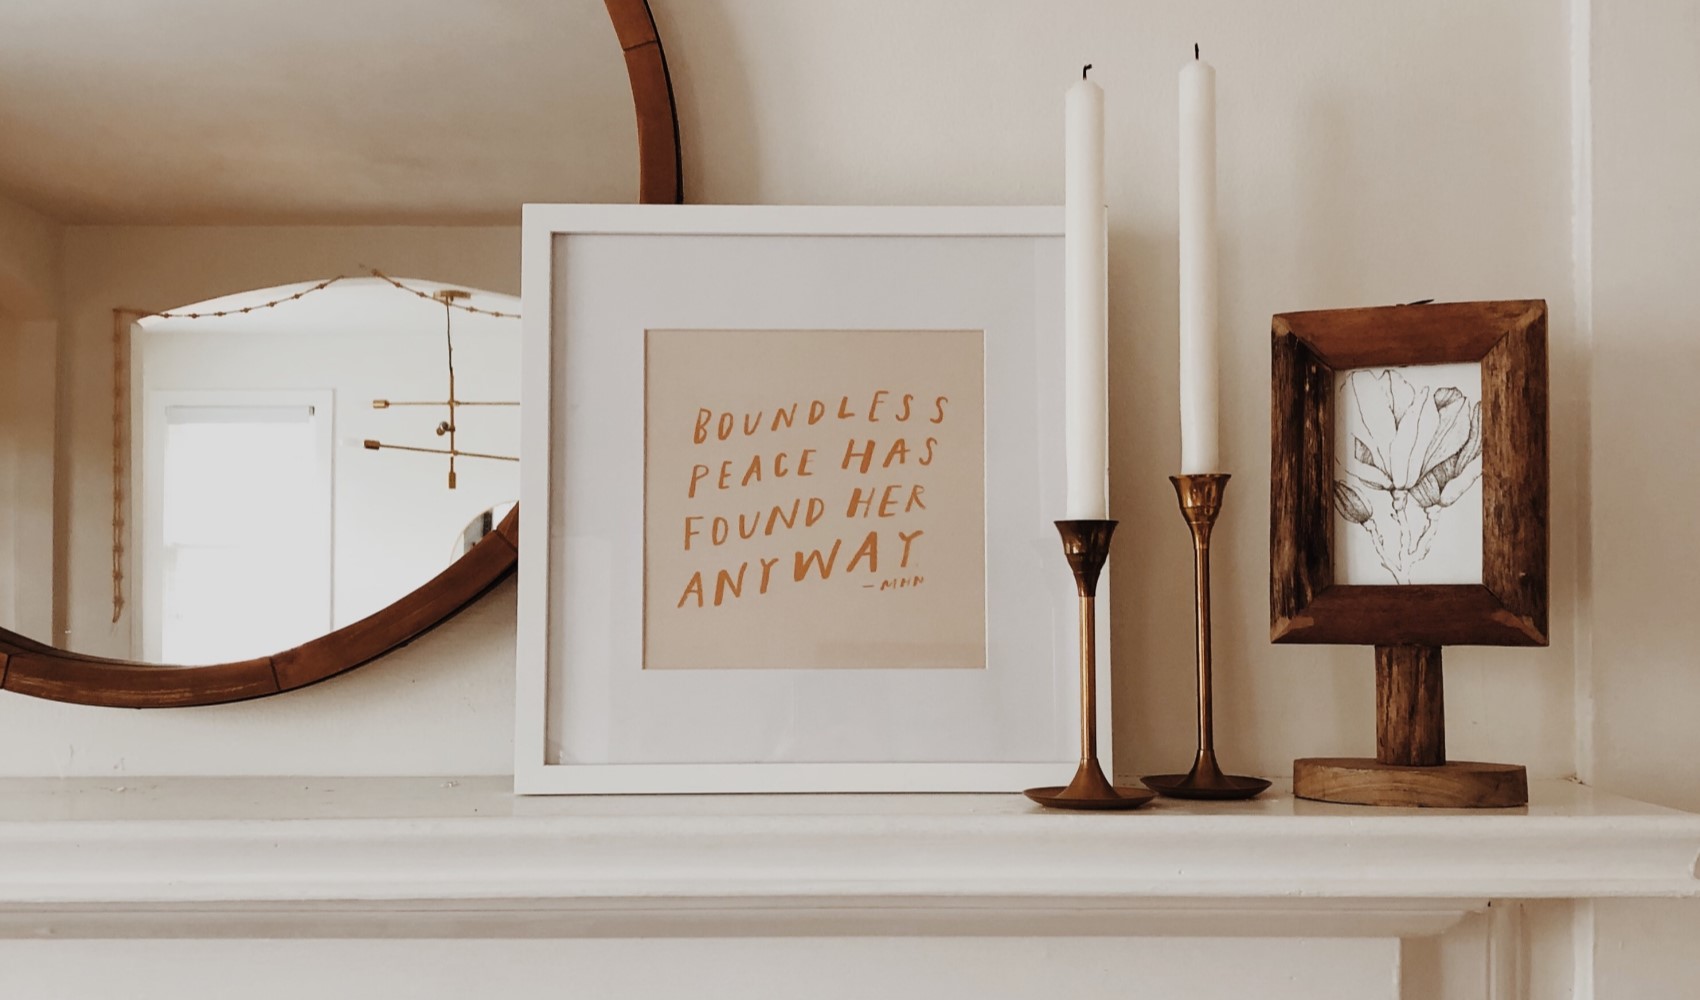 BOUNDLESS
PEACE HAS
FOUND HER
ANYWAY
—MHN